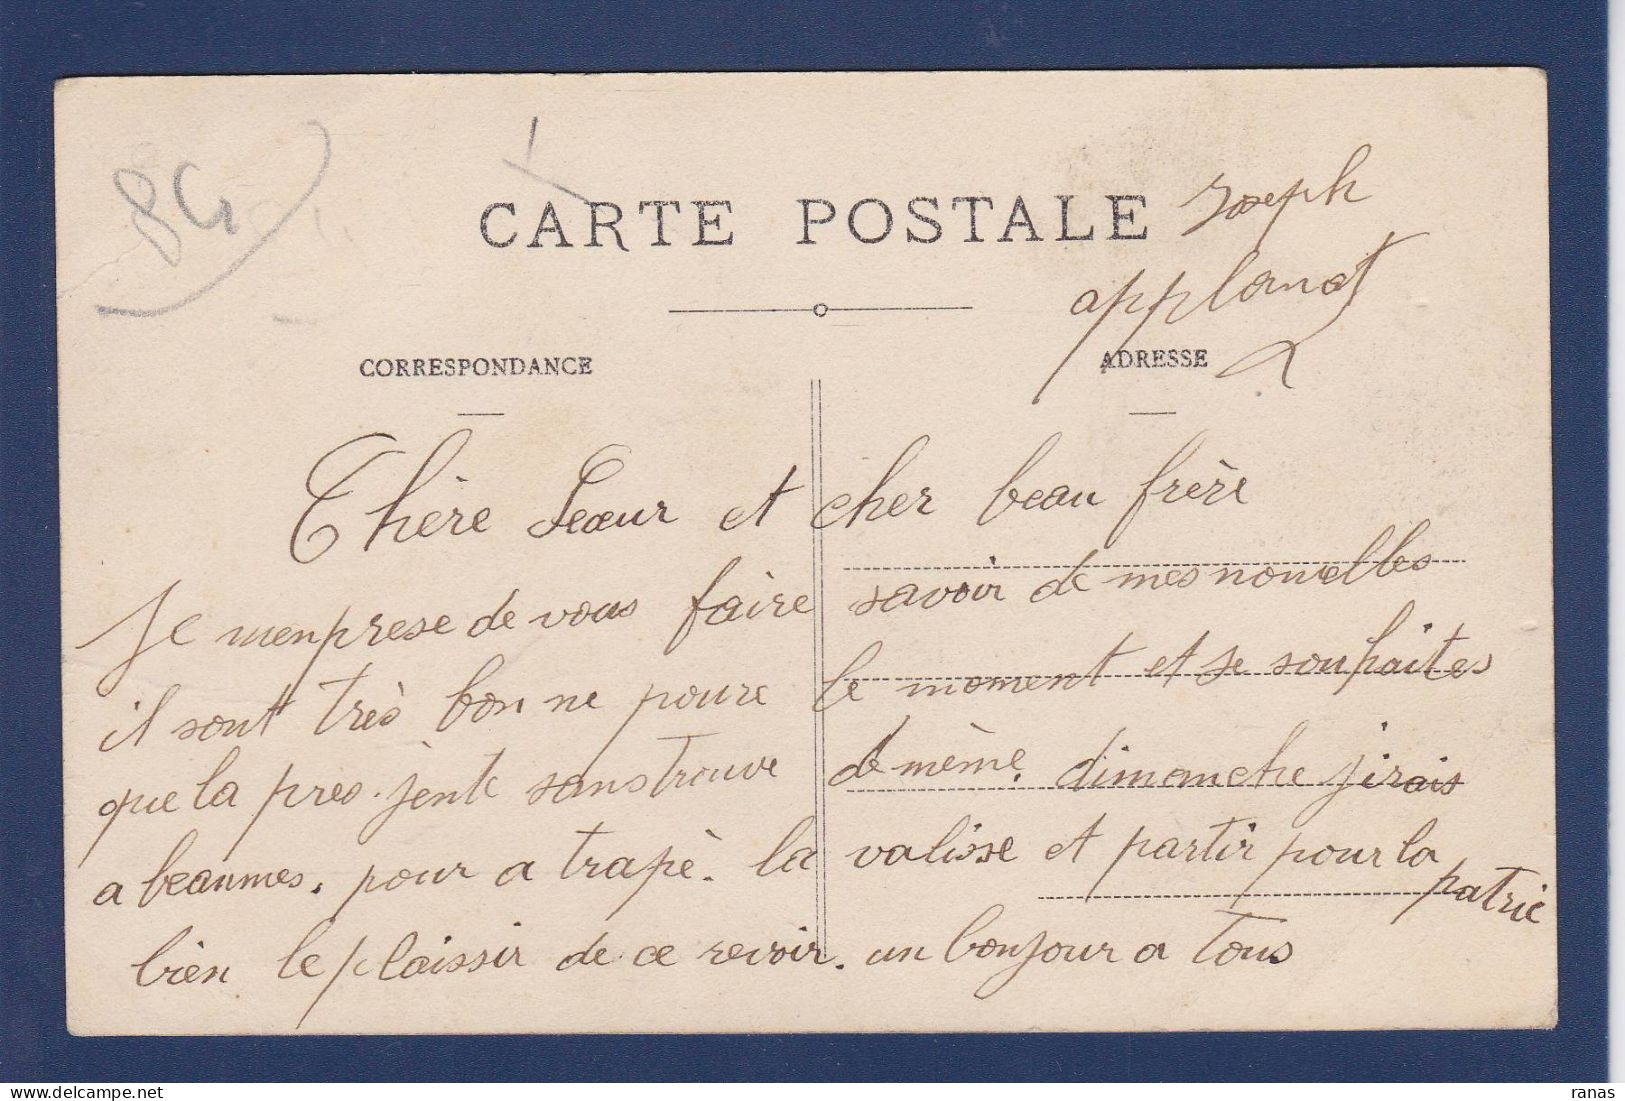 84
CARTE POSTALE
Joseph
applanat
CORRESPONDANCE
ADRESSE
Chère Seœur et cher beau frère
Je menprese de vous faire savoir de mes nouvelles
il sont très bonne poure le moment et se souhaites
que la pres.jente sans trouve de même. dimanche j'irais
a beaumes. pour a trapè. la valisse et partir pour la
patrie
bien le plaissir de ce revoir. un bonjour a tous
ranas